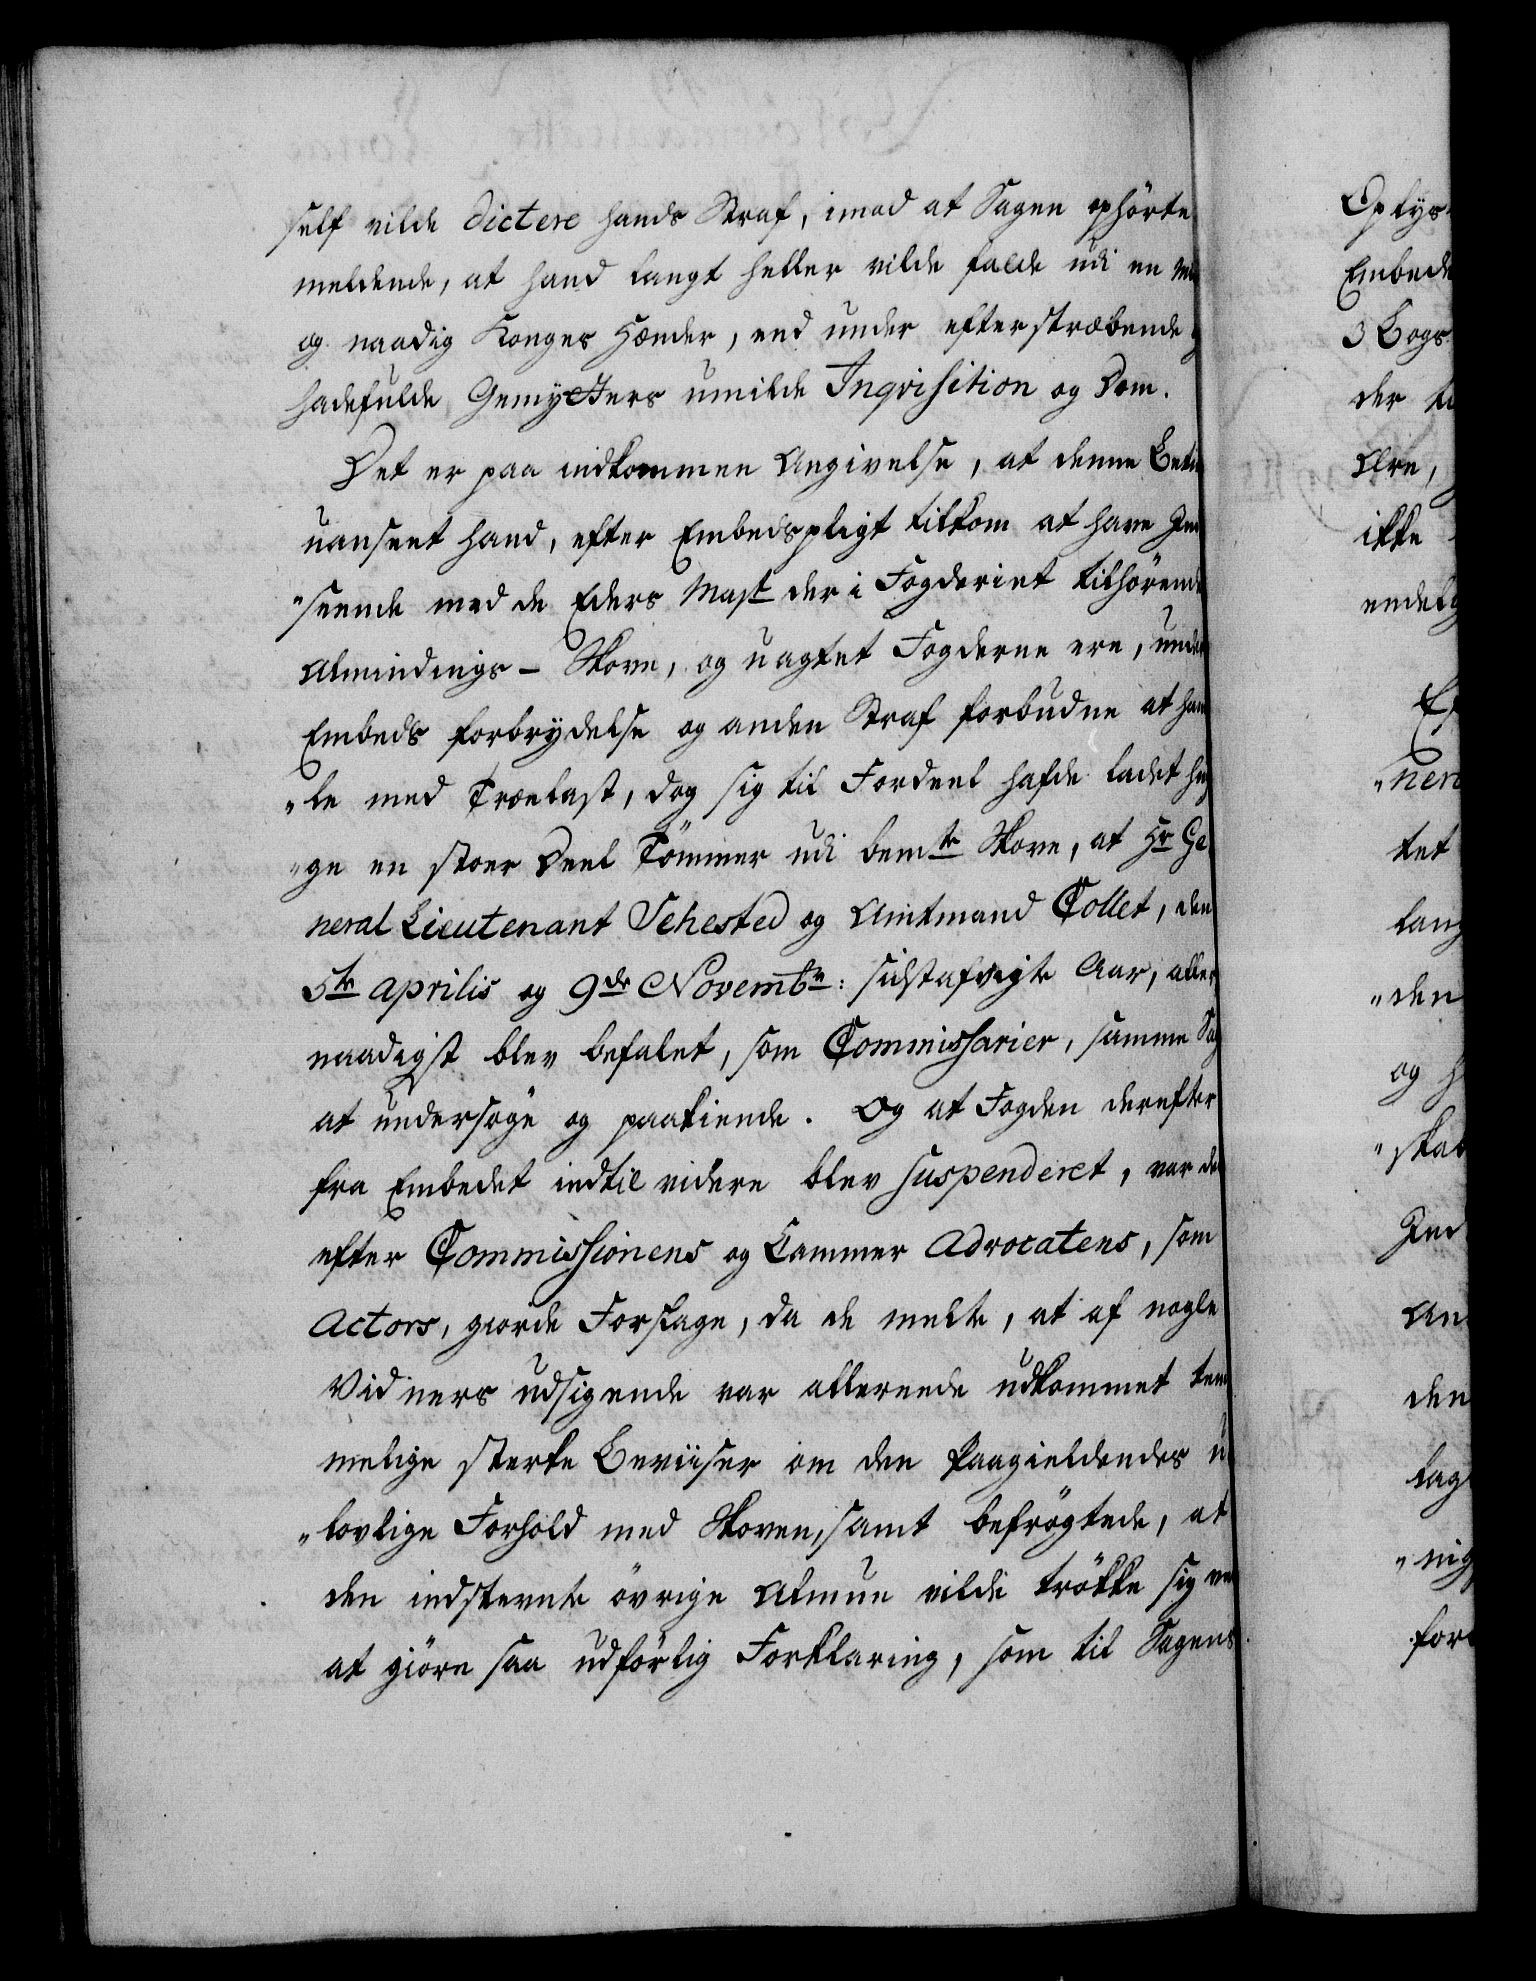 self vilde dictere hands Straf, imod at Sagen ophörte
meldende, at hand langt heller vilde falde udi en
og naadig Konges Hænder, end under efterstræbende
hadefulde Gemytters umilde Inqvisition og Dom.
Det er paa indkommen Angivelse, at denne
uanseet hand, efter Embedspligt tilkom at have Ind
"seende med de Eders Mayst der i Fogderiet tilhörende
Almindings-Skove, og uagtet Fogderne ere, under
Embeds forbrydelse og anden Straf forbudne at han
"le med Trælast, dog sig til Fordeel hafde ladet hug
"ge en stoer Deel Tömmer udi bemte Skove, at Hr Ge
neral Lieutenant Sehested og Amtmand Collet, den
5te Aprilis og 9de Novembr: sidstafvigte Aar, aller
naadigst blev befalet, som Commissarier, samme Sag
at undersöge og paakiende. Og at Fogden derefter
fra Embedet indtil videre blev suspenderet, var det
efter Commissionens og Cammer Advocatens, som
Actors, giorde Forslage, da de meldte, at af nogle
Vidners udsigende var allereede udkommet tem
melige sterke Beviiser om den Paagieldendes u
"lovlige Forhold med Skoven, samt befrögtede, at
den indstevnte övrige Almue vilde trökke sig ved
at giöre saa udförlig Forklaring, som til Sagens
Oplys
Embede
3 Bogs
der
Ære,
ikke
endelig
"nera
tet
lang
"den
og
"skab
Ind
An
den
lag
"nig
for